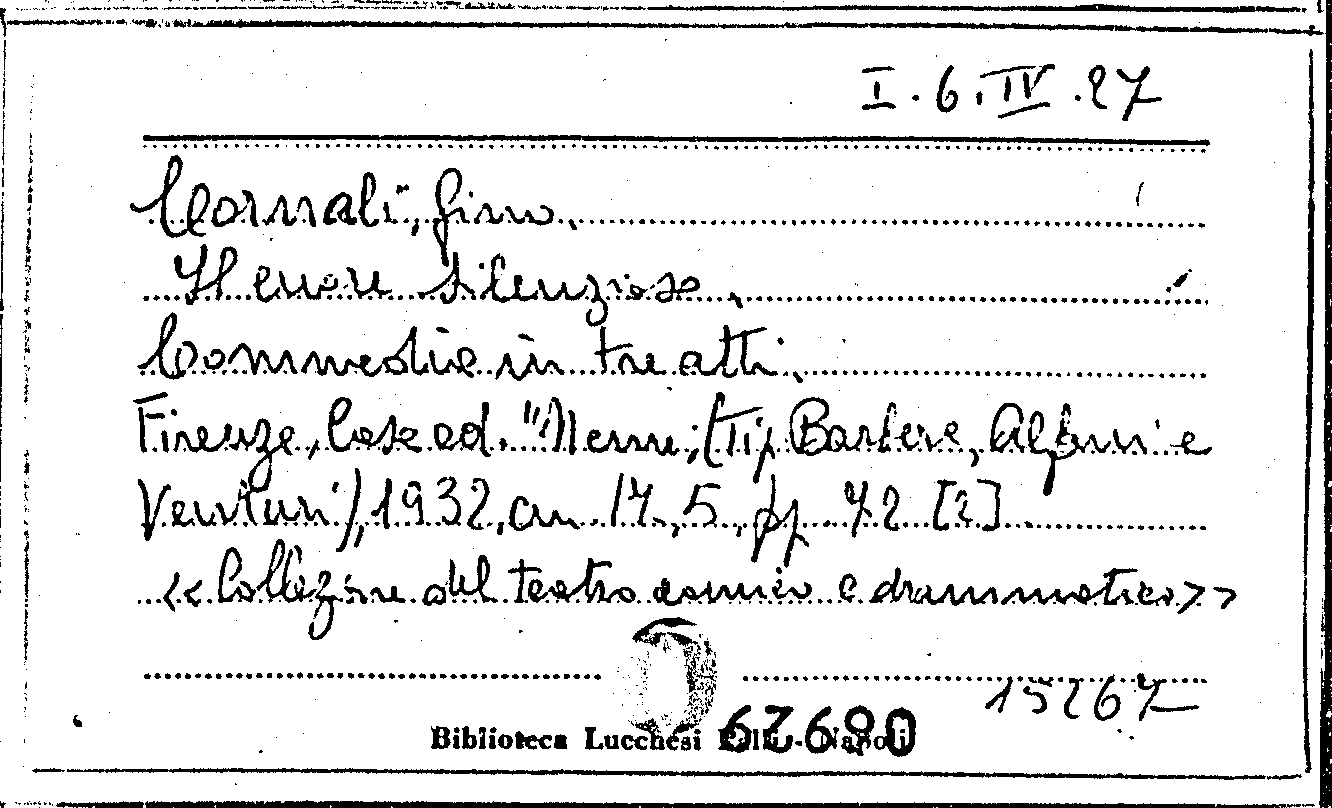 I.6.IV.27
Cornali, Gino.
Il cuore silenzioso.
Commedia in tre atti.
Firenze, Casa ed. "Nemi; (Tip Barbera, Alfani e
Venturi), 1932, cm 17,5, pp 72 [2]
<<Collezione del teatro comico e drammatico>>
15267
Biblioteca Lucchesi Palli - Napoli